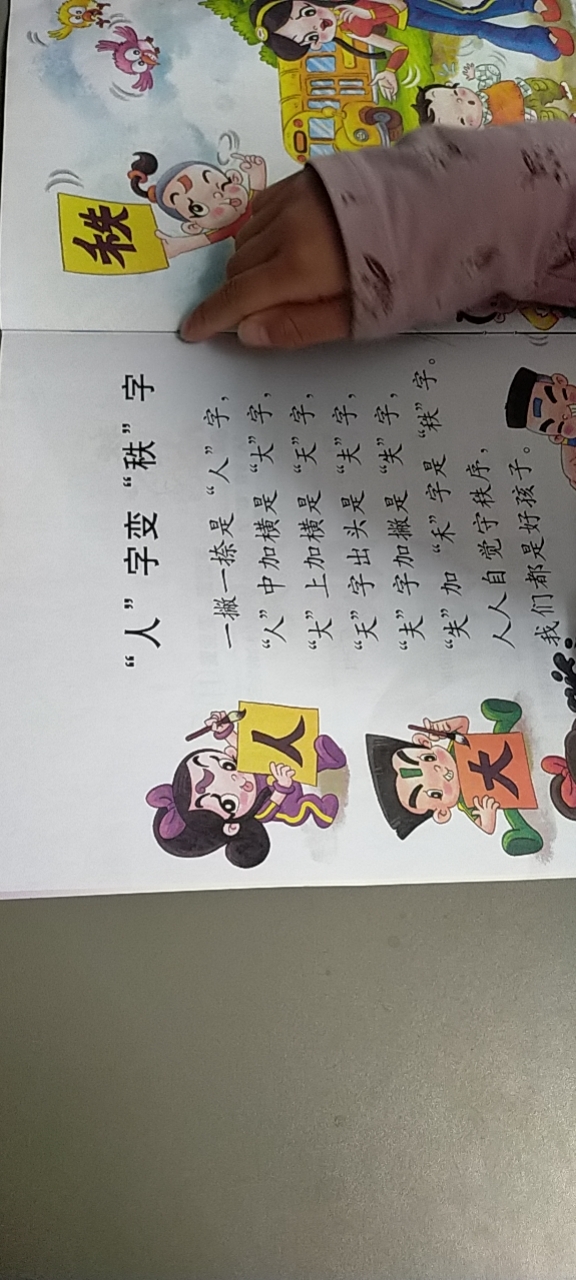 “人”字变“秩”字
一撇一捺是“人”字，
“人”中加横是“大”字，
“大”上加横是“天”字，
“天”字出头是“夫”字，
“夫”字加撇是“失”字，
“失”加“禾”字是“秩”字。
人人自觉守秩序，
我们都是好孩子。
人
大
秩